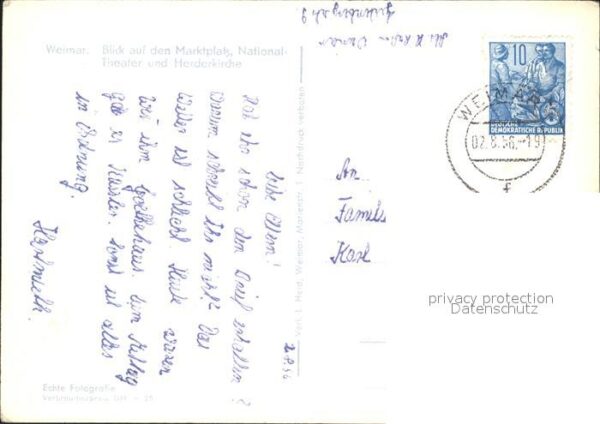 Weimar. Blick auf den Marktplatz, National-
Theater und Herderkirche
2.8.56
Liebe Eltern!
Habt ihr schon den Brief erhalten?
Warum schreibt Ihr nicht? Das
Wetter ist schlecht. Heute waren
wir im Goethehaus. Zum Mittag
gab es Nudeln. Sonst ist alles
in Ordnung.
Hartmuth.
Echte Fotografie
Verl. J. Heid, Weimar, Marienstr. 1 Nachdruck verboten
10
DEUTSCHE
DEMOKRATISCHE REPUBLIK
WEIMAR
02.8.56.-19
f
An
Familie
Karl
privacy protection
Datenschutz